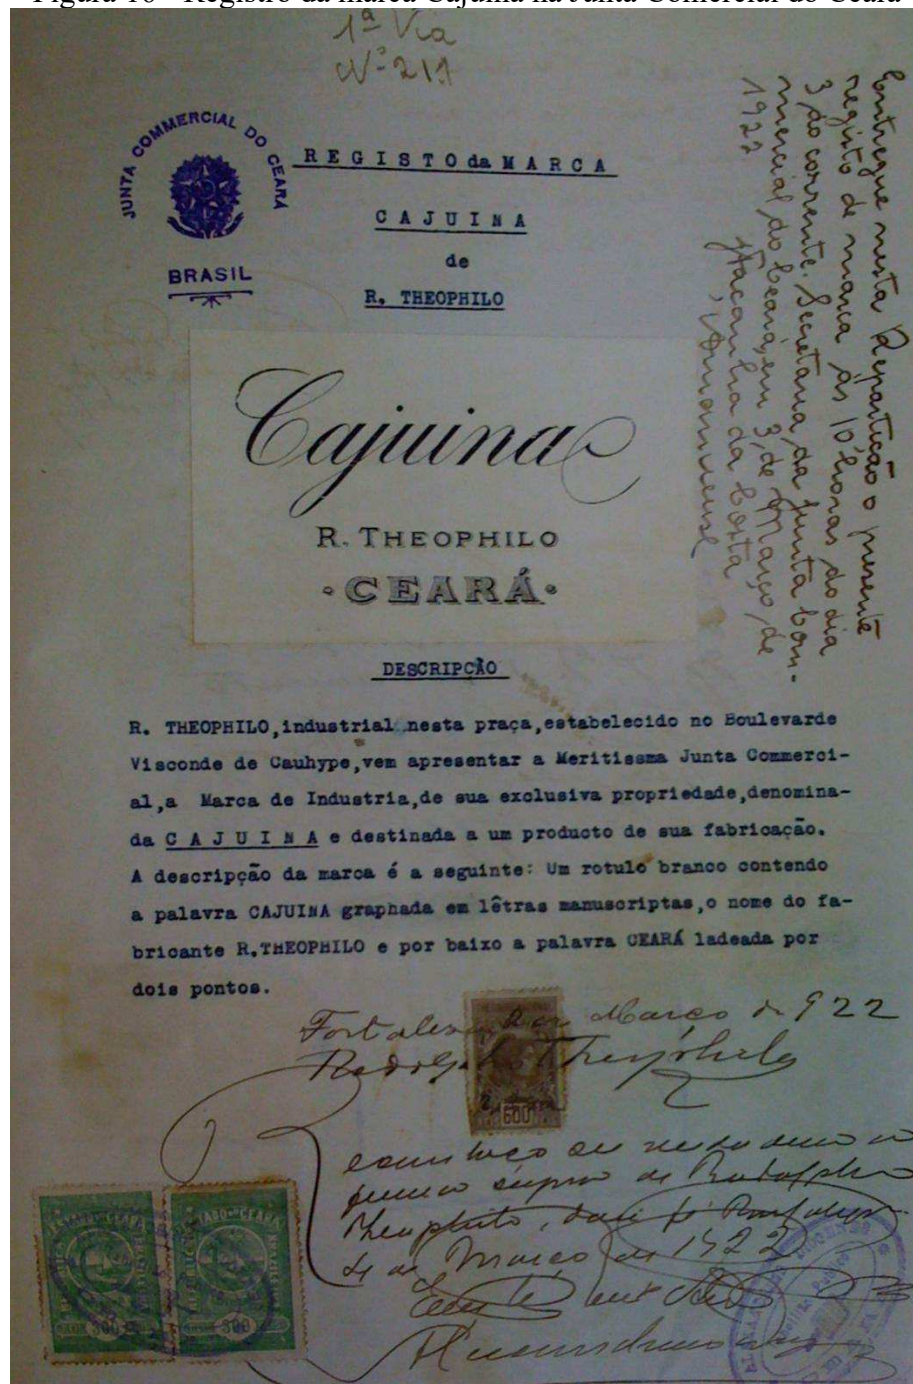 Figura 10 - Registro da marca Cajuína na Junta Comercial do Ceará
1ª Via
Nº 211
JUNTA COMMERCIAL DO CEARÁ
BRASIL
REGISTO da MARCA
CAJUINA
de
R. THEOPHILO
Entregue nesta Repartição o presente
registo de marca ás 10 horas do dia
3 do corrente. Secretaria da Junta Com-
mercial do Ceará, em 3 de Março de
1922
da Costa
Amanuense
Cajuina
R. THEOPHILO
·CEARÁ·
DESCRIPCÃO
R. THEOPHILO,industrial nesta praça,estabelecido no Boulevarde
Visconde de Cauhype,vem apresentar a Meritissma Junta Commerci-
al,a Marca de Industria,de sua exclusiva propriedade,denomina-
da CAJUINA e destinada a um producto de sua fabricação.
A descripção da marca é a seguinte: Um rotulo branco contendo
a palavra CAJUINA graphada em lêtras manuscriptas,o nome do fa-
bricante R.THEOPHILO e por baixo a palavra CEARÁ ladeada por
dois pontos.
Março de 922
Rodolpho Theophilo
600
de Rodolpho
Theophilo, dou fé
de Março de 1922
ESTADO DO CEARÁ
300
ESTADO DO CEARÁ
300